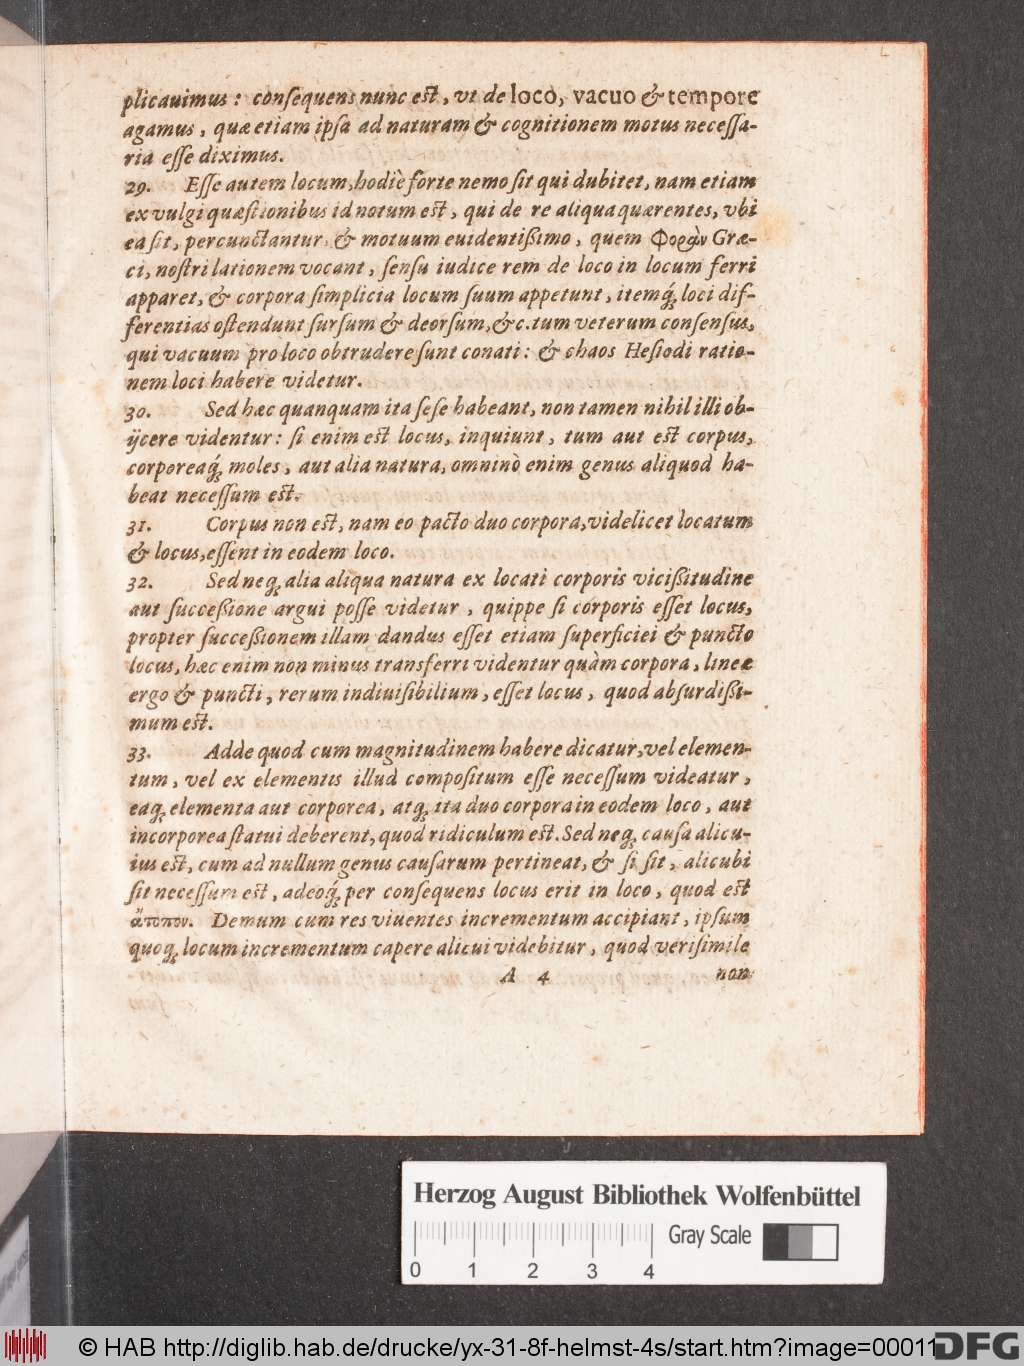 plicauimus : conſequens nunc eſt, vt de loco, vacuo & tempore
agamus, quæ etiam ipſa ad naturam & cognitionem motus neceſſa-
ria eſſe diximus.
29. Eſſe autem locum, hodiè forte nemo ſit qui dubitet, nam etiam
ex vulgi quæſtionibus id notum eſt, qui de re aliqua quærentes, vbi
ea ſit, percunctantur, & motuum euidentißimo, quem Φορὰν Græ-
ci, noſtri lationem vocant, ſenſu iudice rem de loco in locum ferri
apparet, & corpora ſimplicia locum ſuum appetunt, itemq́; loci dif-
ferentias oſtendunt ſurſum & deorſum, &c. tum veterum conſenſus,
qui vacuum pro loco obtrudere ſunt conati: & chaos Heſiodi ratio-
nem loci habere videtur.
30. Sed hæc quanquam ita ſeſe habeant, non tamen nihil illi ob-
ijcere videntur: ſi enim eſt locus, inquiunt, tum aut eſt corpus,
corporeaq́; moles, aut alia natura, omninò enim genus aliquod ha-
beat neceſſum eſt.
31. Corpus non eſt, nam eo pacto duo corpora, videlicet locatum
& locus, eſſent in eodem loco.
32. Sed neq; alia aliqua natura ex locati corporis vicißitudine
aut ſucceßione argui poſſe videtur, quippe ſi corporis eſſet locus,
propter ſucceßionem illam dandus eſſet etiam ſuperficiei & puncto
locus, hæc enim non minus transferri videntur quàm corpora, lineæ
ergo & puncti, rerum indiuiſibilium, eſſet locus, quod abſurdißi-
mum eſt.
33. Adde quod cum magnitudinem habere dicatur, vel elemen-
tum, vel ex elementis illud compoſitum eſſe neceſſum videatur,
eaq; elementa aut corporea, atq; ita duo corpora in eodem loco, aut
incorporea ſtatui deberent, quod ridiculum eſt. Sed neq; cauſa alicu-
ius eſt, cum ad nullum genus cauſarum pertineat, & ſi ſit, alicubi
ſit neceſſum eſt, adeoq́; per conſequens locus erit in loco, quod eſt
ἄτοπον. Demum cum res viuentes incrementum accipiant, ipſum
quoq; locum incrementum capere alicui videbitur, quod veriſimile
A 4 non
Herzog August Bibliothek Wolfenbüttel
Gray Scale
0 1 2 3 4
© HAB http://diglib.hab.de/drucke/yx-31-8f-helmst-4s/start.htm?image=00011
DFG